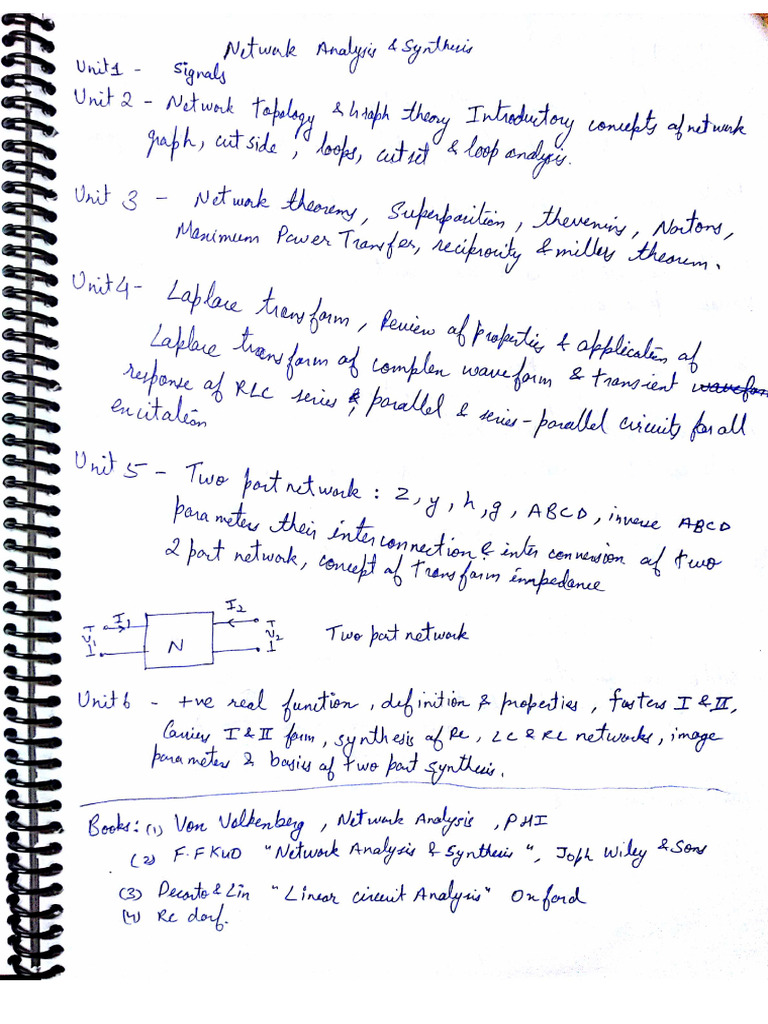 Network Analysis & Synthesis
Unit 1 - Signals
Unit 2 - Network topology & Graph theory Introductory concepts of network
graph, cut side, loops, cutset & loop analysis.
Unit 3 - Network theorems, Superposition, thevenins, Nortons,
Maximum Power Transfer, reciprocity & millers theorem.
Unit 4 - Laplace transform, Review of properties & application of
Laplace transform of complex waveform & transient
response of RLC series & parallel & series-parallel circuits for all
excitation
Unit 5 - Two port network : Z, y, h, g, ABCD, inverse ABCD
parameters their interconnection & inter conversion of two
2 port network, concept of transform impedance
I1 I2
V1 N V2 Two port network
Unit 6 - +ve real function, definition & properties, fosters I & II,
Carriers I & II form, synthesis of Rc, LC & RL networks, image
parameters & basics of two port synthesis.
Books: (1) Von Valkenberg, Network Analysis, PHI
(2) F.F KUO "Network Analysis & Synthesis", Joph Wiley & Sons
(3) Decarto & Lin "Linear circuit Analysis" Oxford
(4) Rc dorf.